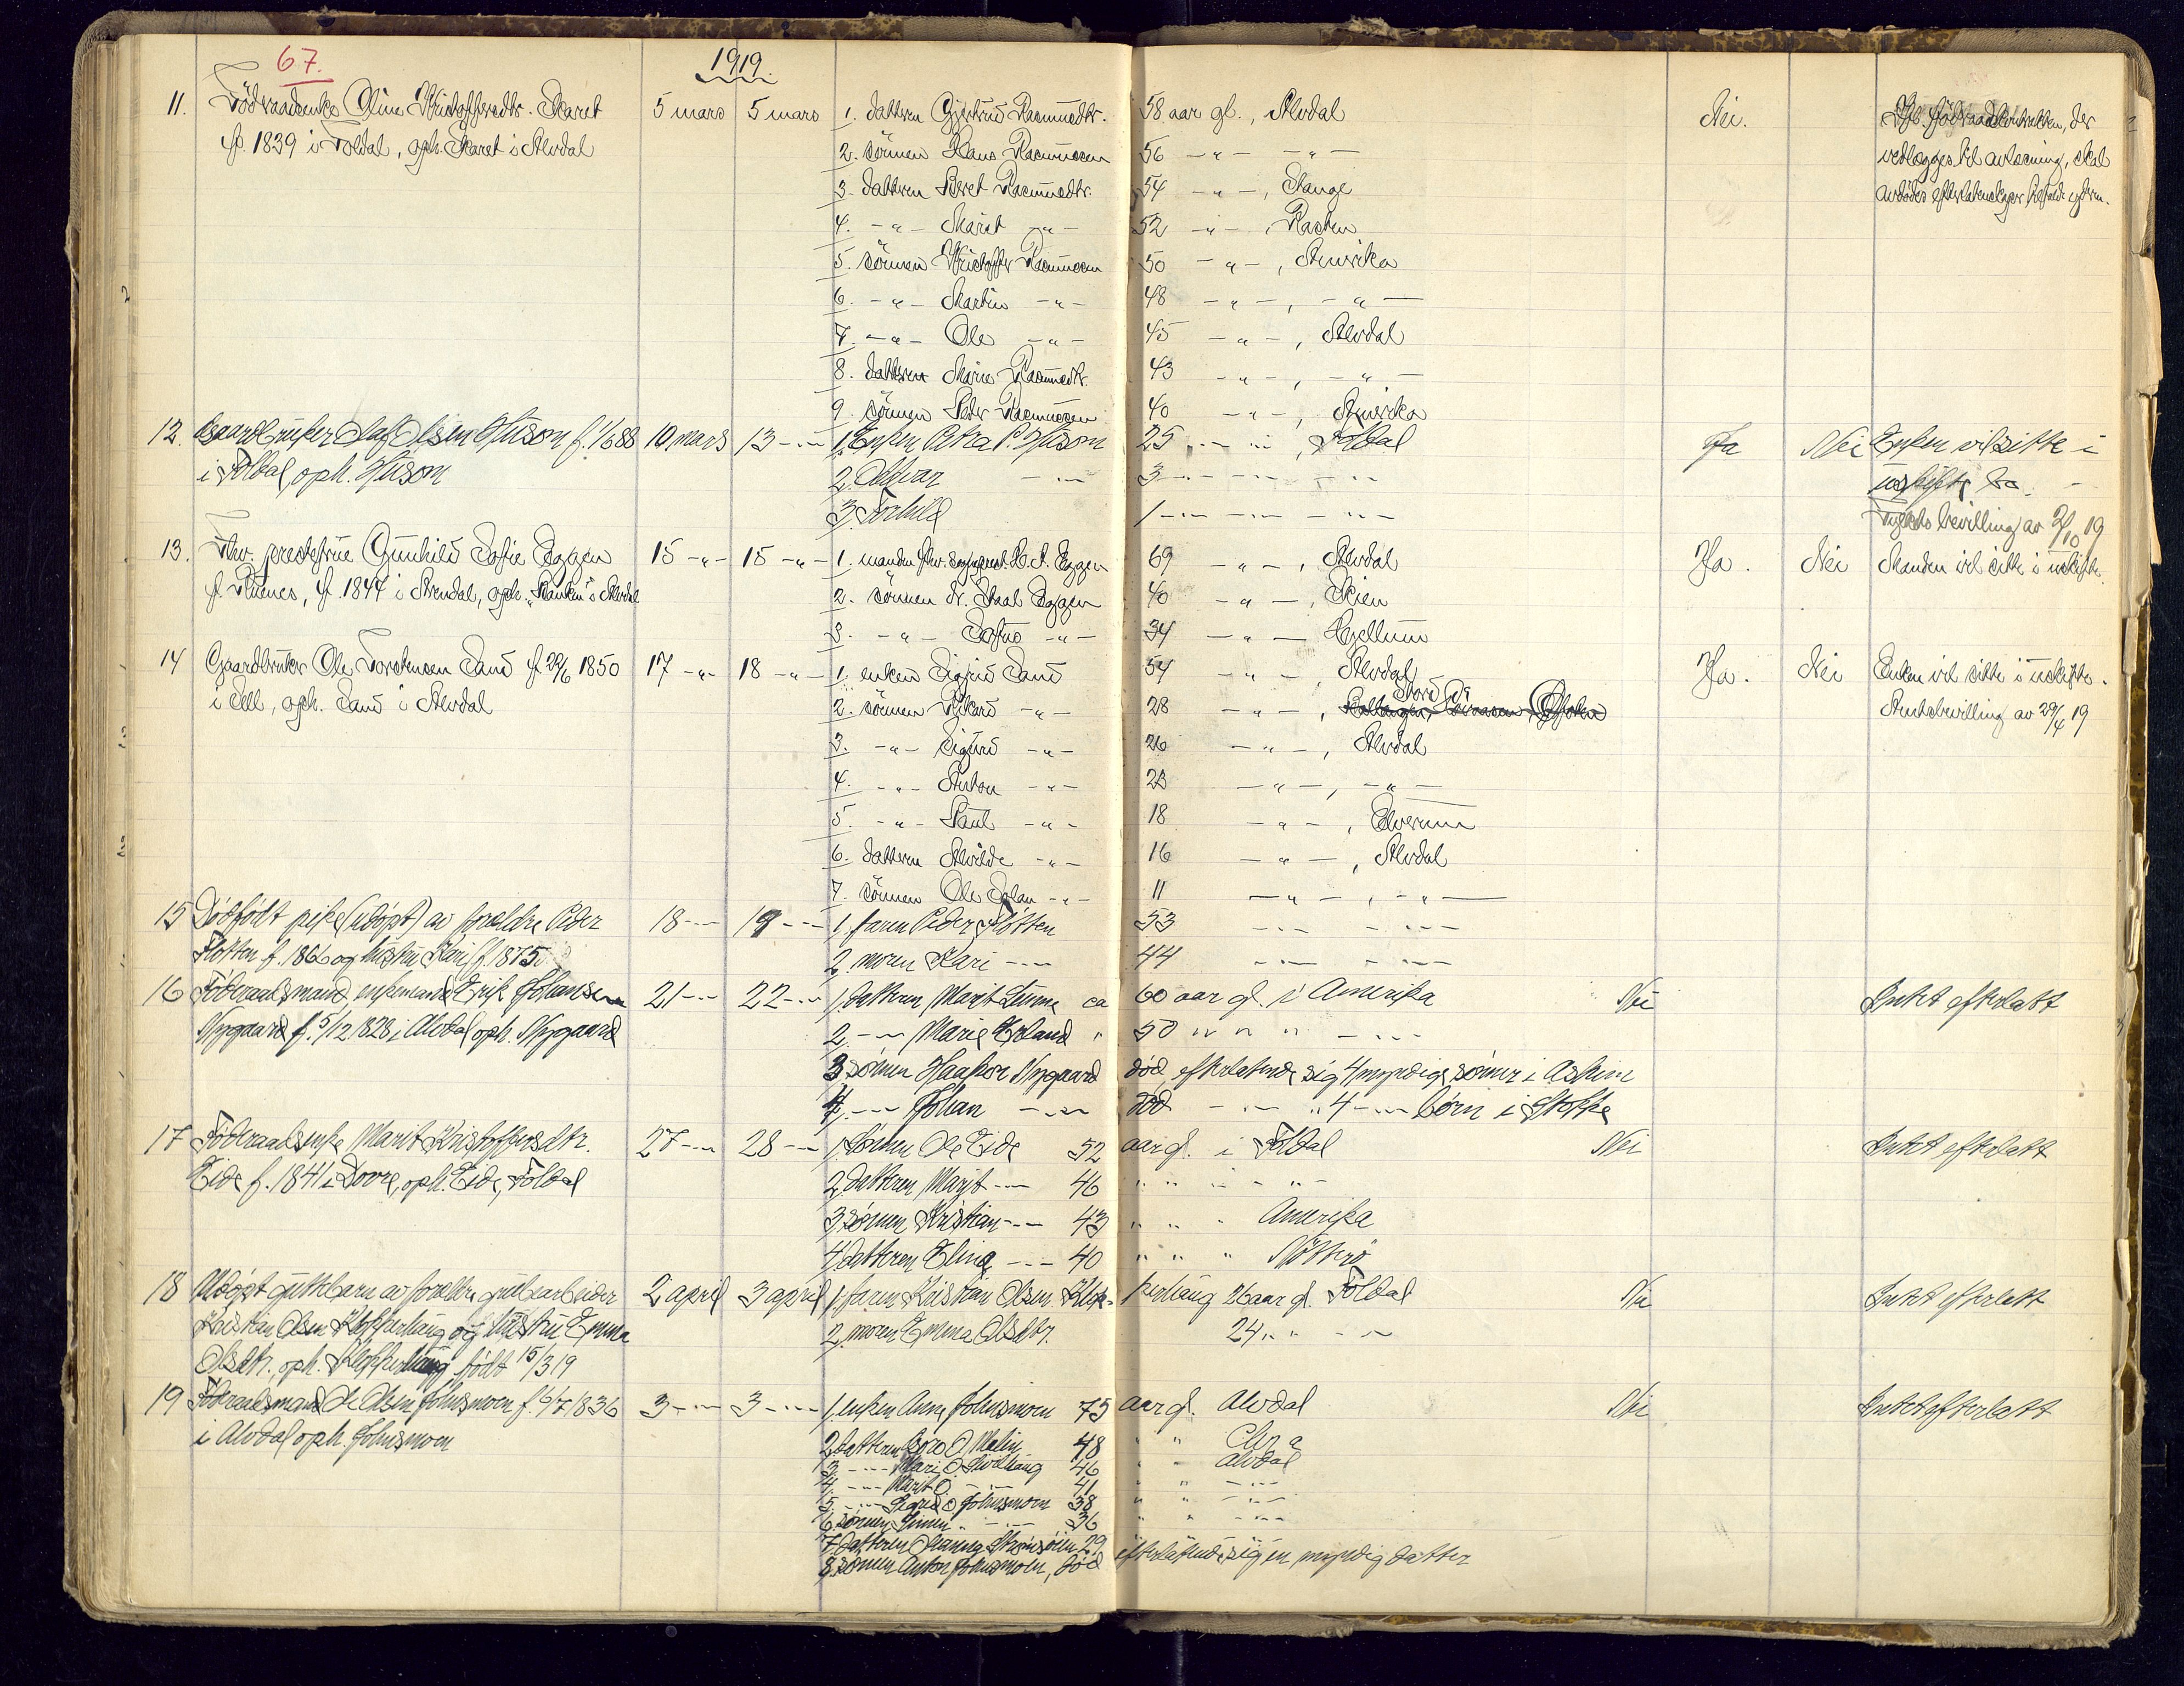 67. 1919.
11. Födraadsenke Oline Kristoffersdtr. Skaret 5 mars 5 mars 1. datteren Gjertrud Rasmusdtr. 58 aar gl., Alvdal Nei. Ifl. födraadkontrakten, der
f. 1839 i Foldal, oph. Skaret i Alvdal 2. sönnen Hans Rasmussen 56 -"- -"- vedlægges til avlæsning, skal
3. datteren Beret Rasmusdtr. 54 -"-, Stange avdödes efterlatenskaper
4. -"- Marit -"- 52 -"-, Rasten
5. sönnen Kristoffer Rasmussen 50 -"-, Amerika
6. -"- Martin -"- 48 -"-, -"-
7. -"- Ole -"- 45 -"-, Alvdal
8. datteren Marie Rasmusdtr. 43 -"-, -"-
9. sönnen Peder Rasmussen 40 -"-, Amerika
12. Gaardbruker Olaf Olsen Husom f. 1/6 88 10 mars 13 -"- 1. Enken P. Husom 25 -"-, Foldal Ja Nei Enken vil sitte i
i Foldal, oph. Husom 2. -"- 3 -"- -"- uskifte
3. Torhild 1 -"- -"- -"- bevilling av 2/10 19
13. Fhv. prestefrue Gunhild Sofie Eggen 15 -"- 15 -"- 1. manden fhv. sogneprest Eggen 69 -"-, Alvdal Ja. Nei Manden vil sitte i uskifte.
f. 1844 i Arendal, oph. i Alvdal 2. sönnen dr. Paal Eggen 40 -"-, Skien
3. -"- -"- 34 -"- Hjellum
14 Gaardbruker Ole Torstensen Sand f. 29/6 1850 17 -"- 18 -"- 1. enken Sigrid Sand 54 -"-, Alvdal Ja. Nei Enken vil sitte i uskifte.
i Sell, oph. Sand i Alvdal 2. sönnen Rikard -"- 28 -"-, Amtsbevilling av 29/4 19
3. -"- Sigurd -"- 26 -"-, Alvdal
4. -"- Anton -"- 23 -"-, -"-
5. -"- Paul -"- 18 -"-, Elverum
6. datteren Alvilde -"- 16 -"-, Alvdal
7. sönnen Ole -"- 11 -"-, -"-
15 Dödfödt pike (udöpt) av forældre Peder 18 -"- 19 -"- 1. faren Peder Flötten 53 -"- -"-
Flötten f. 1866 og hustru Kari f. 1875. 2. moren Kari -"- 44 -"- -"-
16 Föderaadsmand, enkemand Erik Johansen 21 -"- 22 -"- 1. datteren Marit ca 60 aar gl. i Amerika Nei Intet efterlatt
Nygaard f. 5/12 1828 i Alvdal oph. Nygaard 2. -"- Marie " 50 " " " -"-
3. sönnen Haakon Nygaard död, efterlatende sig 4 myndige sönner i Askim
4. -"- Johan -"- död -"- " 4 -"- börn i Stokke
17 Föderaadsenke Marit Kristoffersdtr. 27 -"- 28 -"- 1. Sönnen Ole Eide 52 aar gl. i Foldal Nei Intet efterlatt
Eide f. 1841 i Dovre, oph. Eide, Foldal 2. datteren Marit -"- 46 " " " -"-
3. sönnen Kristian -"- 43 " " " Amerika
4. datteren Eline -"- 40 " " " Nötterö
18 Udöpt guttebarn av forældre grubearbeider 2 april 3 april 1. faren Kristian Olsen Klop- perhaug 26 aar gl. Foldal Nei Intet efterlatt
Kristian Olsen Klopperhaug og hustru Emma 2. moren Emma Olsdtr. 24 " " -"-
Olsdtr., oph. Klopperhaug födt 15/3 19
19 Föderaadsmand Ole Olsen Johnsmoen f. 6/7 1836 3 -"- 3 -"- 1. enken Anne Johnsmoen 75 aar gl. Alvdal Nei Intet efterlatt
i Alvdal oph. Johnsmoen 2. datteren O. Melin 48 " " Chr.a
3. -"- Mari O. 46 " " Alvdal
4. -"- Marit O. -"- 41 " " -"-
5. -"- Sigrid O. Johnsmoen 38 " " -"-
6. sönnen Simen -"- 36 " " -"-
7. datteren 29 " " -"-
8. sönnen Anton Johnsmoen, död efterlatende sig en myndig datter